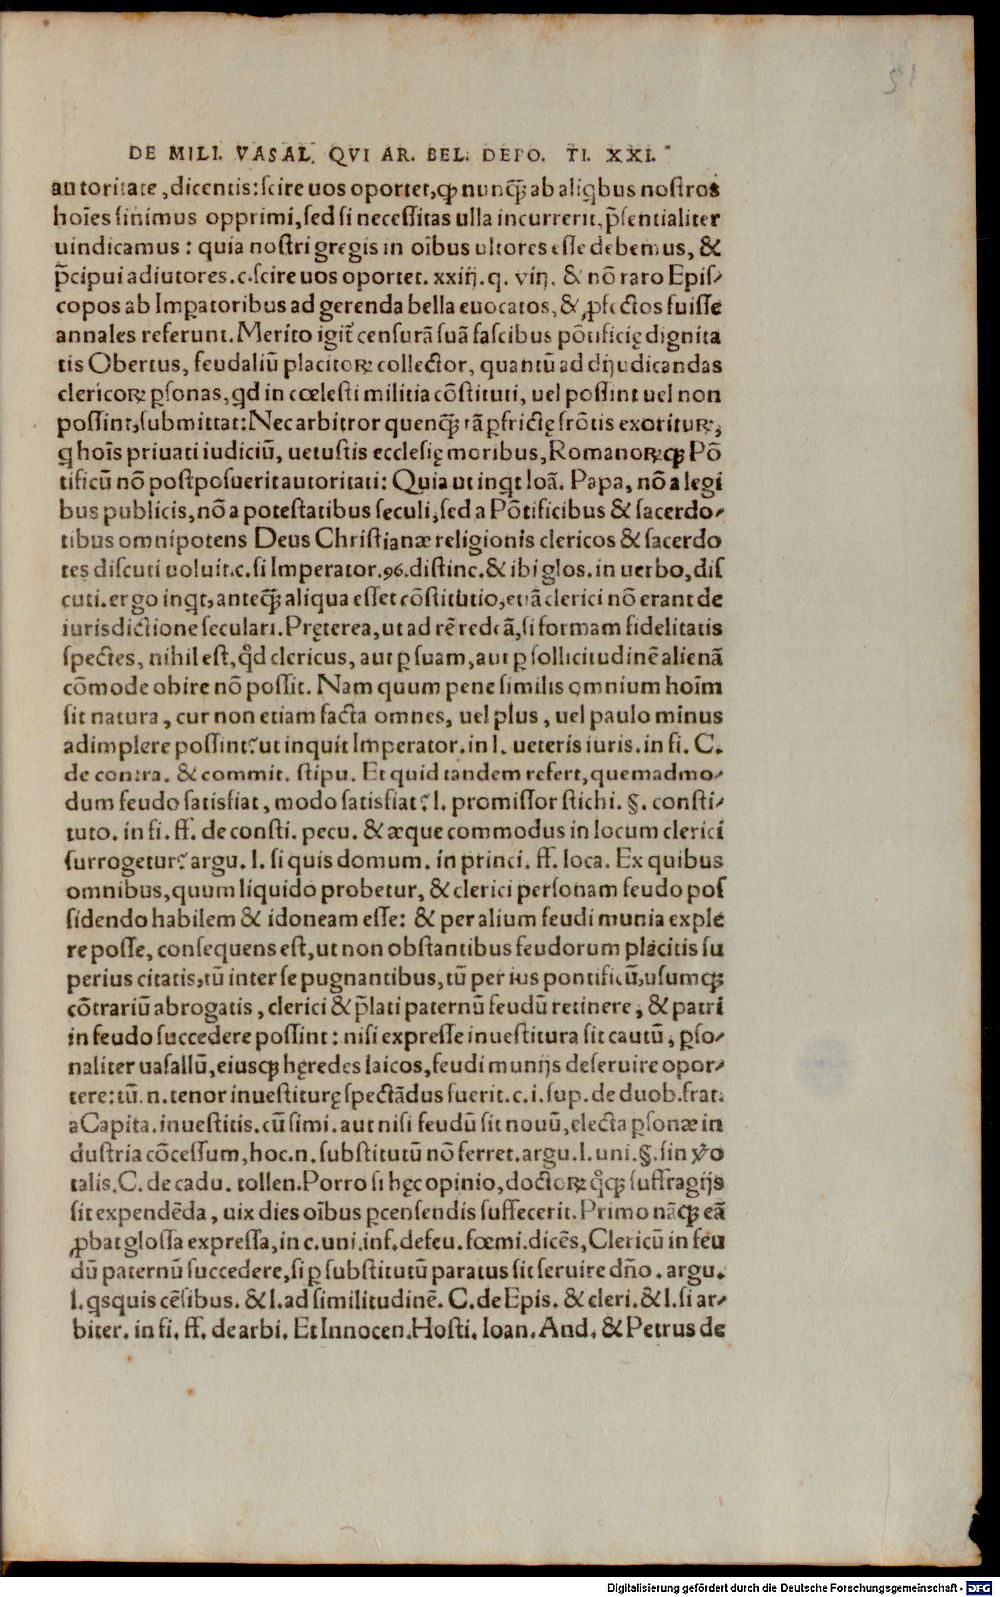 51
DE MILI. VASAL. QVI AR. BEL. DEPO. TI. XXI.
autoritate, dicentis: scire uos oportet, ꝙ nunq̃ꝫ ab aliq̇bus nostros
hoīes sinimus opprimi, sed si necessitas ulla incurrerit, p̄sentialiter
uindicamus: quia nostri gregis in oībus ultores esse debemus, &
p̄cipui adiutores. c. scire uos oportet. xxiij. q. viij. & nō raro Epis⸗
copos ab Impatoribus ad gerenda bella euocatos, & ꝓfectos fuisse
annales referunt. Merito igit̃ censurā suā fascibus pōtificię dignita
tis Obertus, feudaliū placitoꝝ collector, quantū ad dijudicandas
clericoꝝ ꝑsonas, qd in cœlesti militia cōstituti, uel possint uel non
possint, submittat: Nec arbitror quenq̃ꝫ tā ꝑfrictę frōtis exoritur,
q hoīs priuati iudiciū, uetustis ecclesię moribus, Romanoꝝqꝫ Pō
tificū nō postposuerit autoritati: Quia ut inqt Ioā. Papa, nō a legi
bus publicis, nō a potestatibus seculi, sed a Pōtificibus & sacerdo⸗
tibus omnipotens Deus Christianæ religionis clericos & sacerdo
tes discuti uoluit. c. si Imperator. 96. distinc. & ibi glos. in uerbo, dis
cuti. ergo inqt, anteq̃ꝫ aliqua esset cōstitutio, etiā clerici nō erant de
iurisdictione seculari. Pręterea, ut ad rē redeā, si formam fidelitatis
spectes, nihil est, qd̓ clericus, aut ꝑ suam, aut ꝑ sollicitudinē alienā
cōmode obire nō possit. Nam quum pene similis omnium hoīm
sit natura, cur non etiam facta omnes, uel plus, uel paulo minus
adimplere possint? ut inquit Imperator. in l. ueteris iuris. in fi. C.
de contra. & commit. stipu. Et quid tandem refert, quemadmo⸗
dum feudo satisfiat, modo satisfiat? l. promissor stichi. §. consti⸗
tuto. in fi. ff. de consti. pecu. & æque commodus in locum clerici
surrogetur? argu. l. si quis domum. in princi. ff. loca. Ex quibus
omnibus, quum liquido probetur, & clerici personam feudo pos
sidendo habilem & idoneam esse: & per alium feudi munia exple
re posse, consequens est, ut non obstantibus feudorum placitis su
perius citatis, tū inter se pugnantibus, tū per ius pontificū, usumqꝫ
cōtrariū abrogatis, clerici & p̄lati paternū feudū retinere, & patri
in feudo succedere possint: nisi expresse inuestitura sit cautū, ꝑso⸗
naliter uasallū, eiusqꝫ hęredes laicos, feudi munijs deseruire opor⸗
tere: tū. n. tenor inuestiturę spectādus fuerit. c. i. sup. de duob. frat.
a Capita. inuestitis. cū simi. aut nisi feudū sit nouū, electa ꝑsonæ in
dustria cōcessum, hoc. n. substitutū nō ferret. argu. l. uni. §. sin v̓o
talis. C. de cadu. tollen. Porro si hęc opinio, doctoꝝ qq̓ꝫ suffragijs
sit expendēda, uix dies oībus ꝑcensendis suffecerit. Primo nāqꝫ eā
ꝓbat glossa expressa, in c. uni. inf. de feu. fœmi. dicēs, Clericū in feu
dū paternū succedere, si ꝑ substitutū paratus sit seruire dño. argu.
l. qsquis cēsibus. & l. ad similitudinē. C. de Epis. & cleri. & l. si ar⸗
biter. in fi. ff. de arbi. Et Innocen. Hosti. Ioan. And. & Petrus de
Digitalisierung gefördert durch die Deutsche Forschungsgemeinschaft - DFG